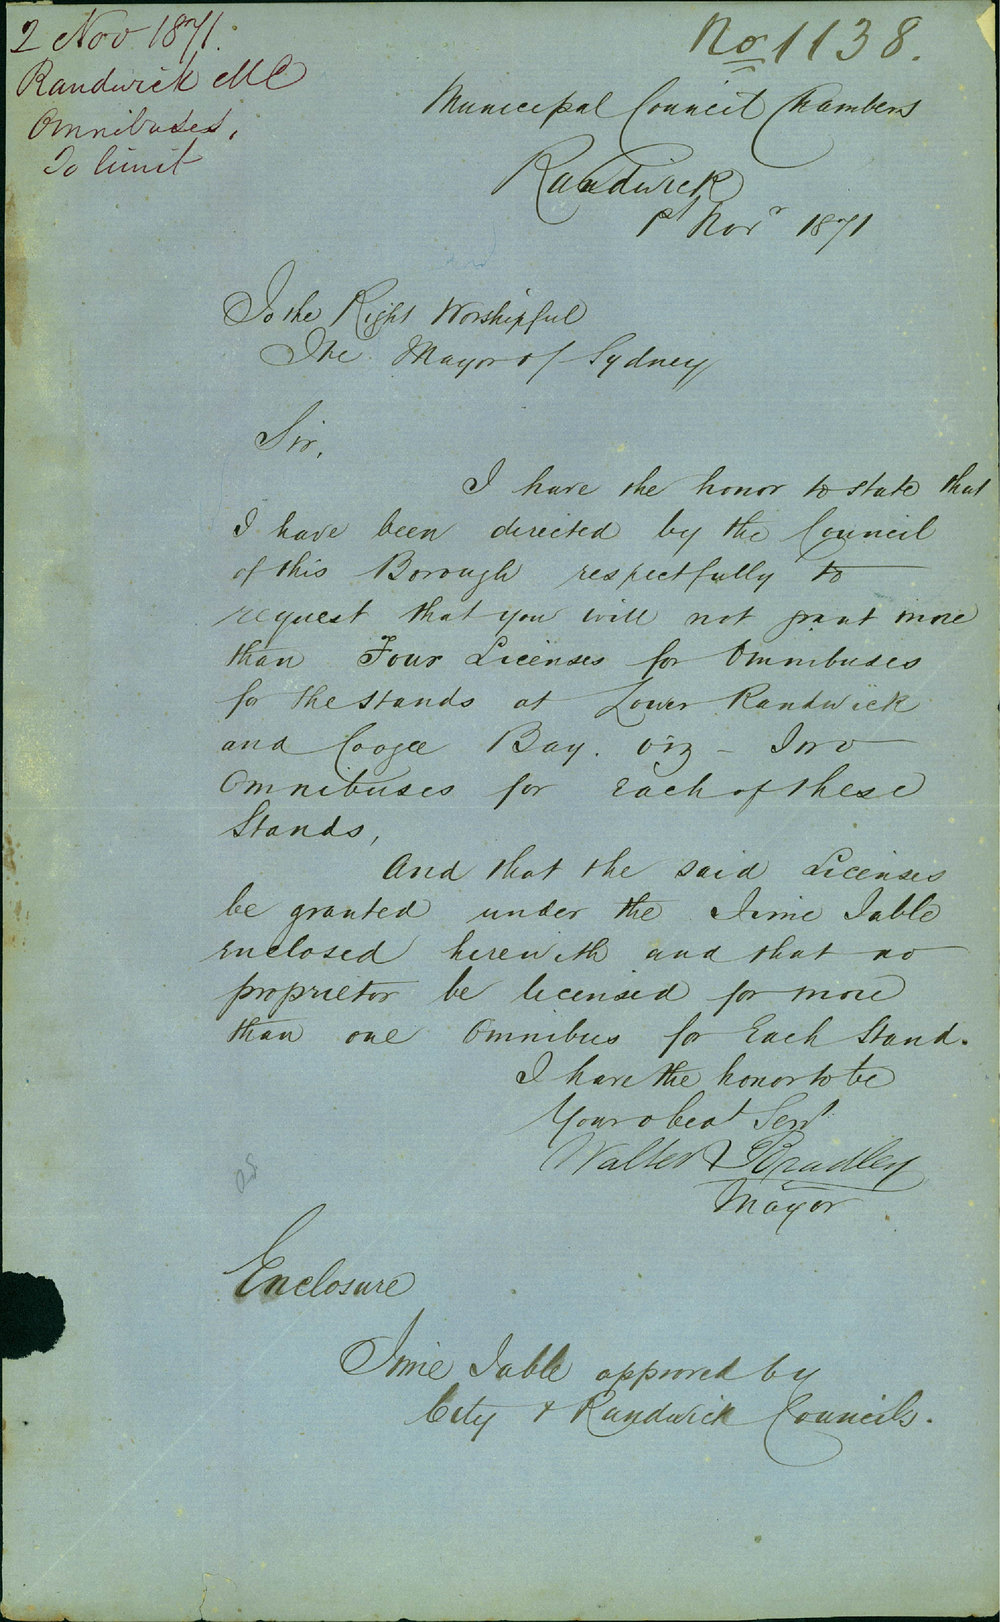 2 Nov 1871.
Randwick MC
Omnibuses,
To limit
No. 1138.
Municipal Council Chambers
Randwick
1st Novr 1871
To the Right Worshipful
The Mayor of Sydney
Sir,
I have the honor to state that
I have been directed by the Council
of this Borough respectfully to
request that you will not grant more
than Four Licenses for Omnibuses
for the stands at Lower Randwick
and Coogee Bay. viz - Two
Omnibuses for Each of these
Stands,
And that the said Licenses
be granted under the Time Table
enclosed herewith and that no
proprietor be licensed for more
than one Omnibus for Each Stand.
I have the honor to be
Your obedt Servt
Walter Bradley
Mayor
Enclosure
Time Table approved by
City & Randwick Councils.